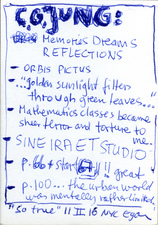 C.G. JUNG:
Memories Dreams
REFLECTIONS
- ORBIS PICTUS
- ..."golden sunlight filters
through green leaves..."
- Mathematics classes became
sheer terror and torture to
me...
SINE IRA ET STUDIO
- p. 66 + start 67 is great
- p. 100... the urban world
was mentally rather limited.
"So true" 11 II 16 NYC